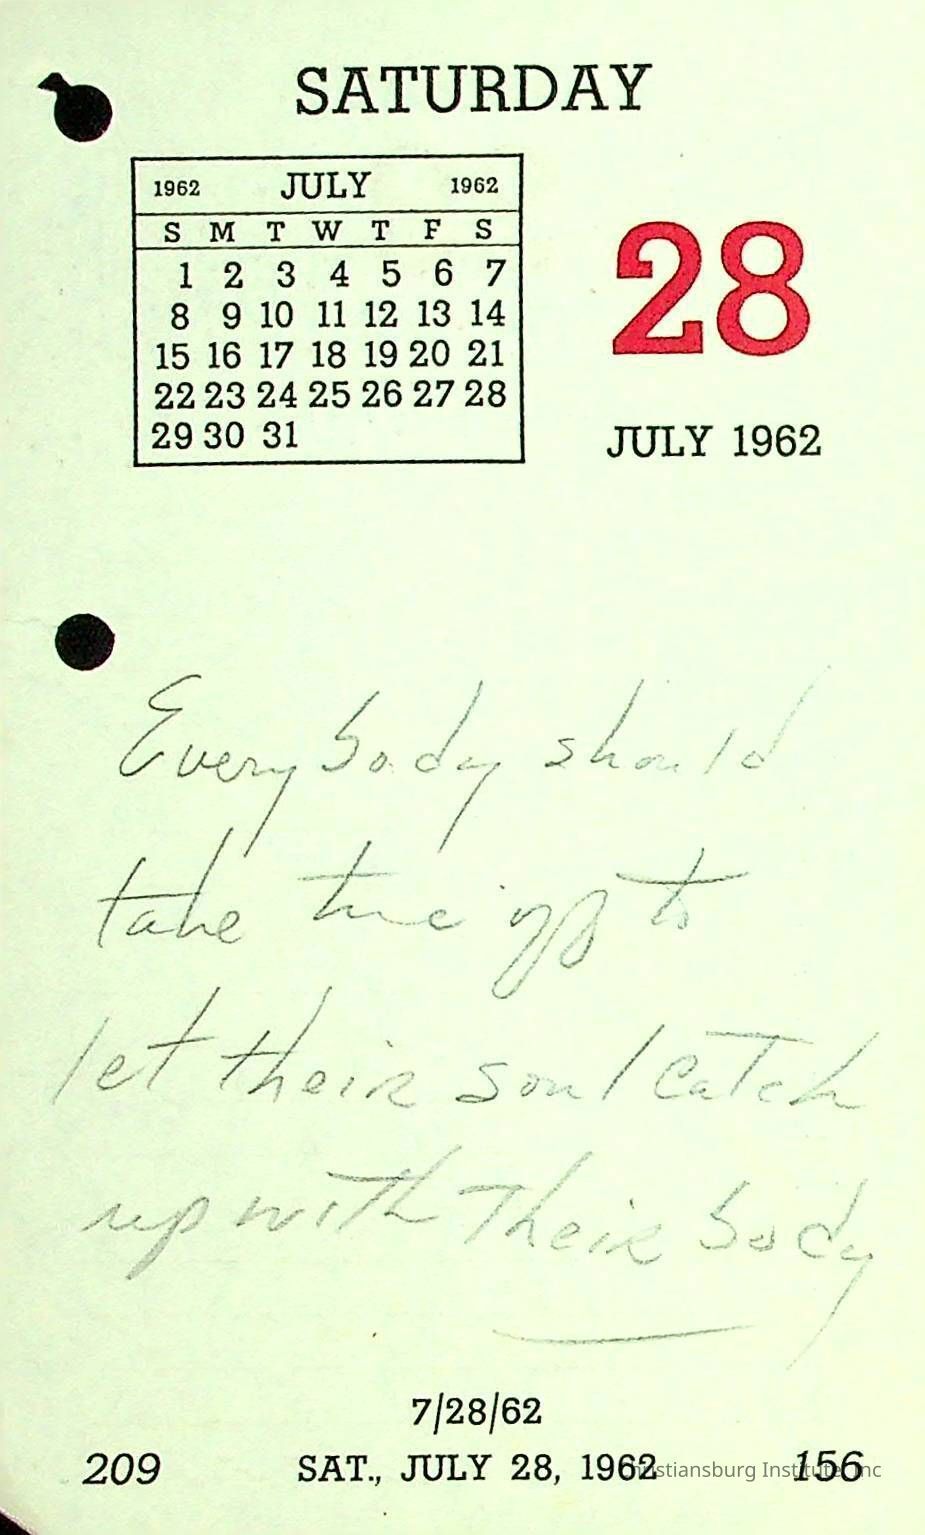 SATURDAY
1962 JULY 1962
S M T W T F S
1 2 3 4 5 6 7
8 9 10 11 12 13 14
15 16 17 18 19 20 21
22 23 24 25 26 27 28
29 30 31
28
JULY 1962
Everybody should
take time off to
let their soul catch
up with their body
7/28/62
209 SAT., JULY 28, 1962 156
Christiansburg Institute, Inc